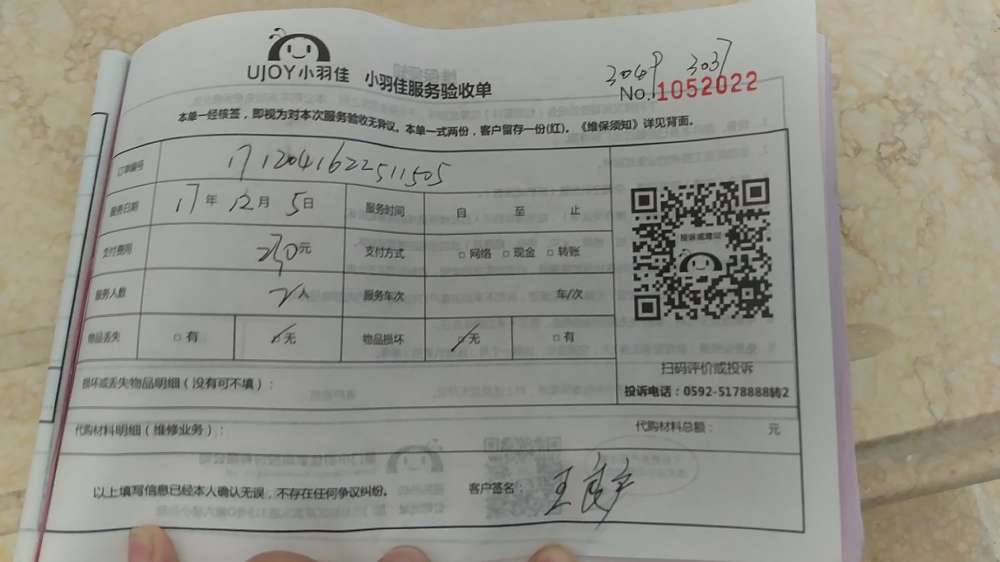 UJOY小羽佳 小羽佳服务验收单
3049 3037
No.1052022
本单一经核签，即视为对本次服务验收无异议。本单一式两份，客户留存一份(红)。《维保须知》详见背面。
订单编号 1712041622511505
服务日期 17年12月5日 服务时间 自 至 止
支付费用 230元 支付方式 □网络 □现金 □转账
服务人数 2人 服务车次 车/次
物品丢失 □有 ☑无 物品损坏 ☑无 □有
投诉或建议
扫码评价或投诉
投诉电话：0592-5178888转2
损坏或丢失物品明细（没有可不填）：
代购材料明细（维修业务）： 代购材料总额： 元
以上填写信息已经本人确认无误，不存在任何争议纠纷。 客户签名：